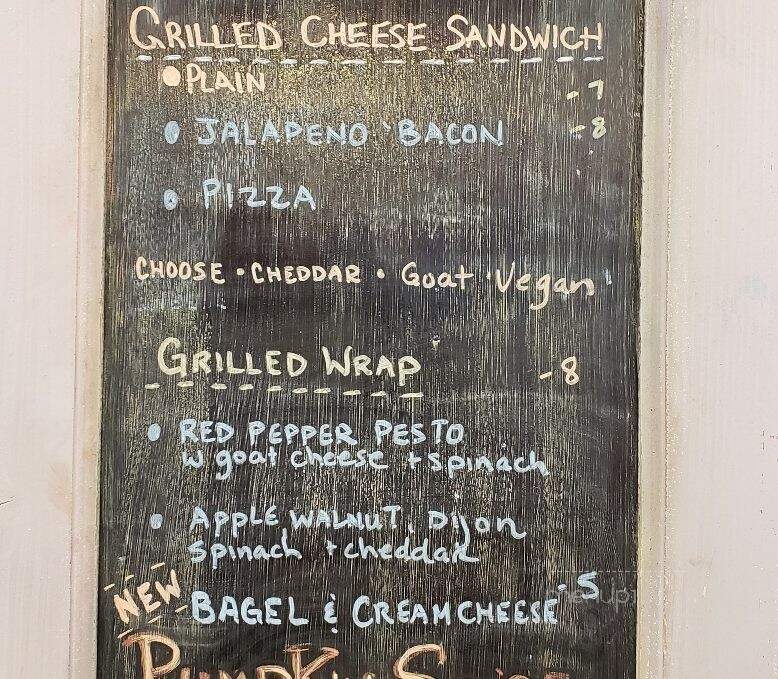 GRILLED CHEESE SANDWICH
• PLAIN - 7
• JALAPENO BACON - 8
• PIZZA
CHOOSE • CHEDDAR • Goat Vegan
GRILLED WRAP - 8
• RED PEPPER PESTO
w goat cheese + spinach
• APPLE WALNUT, Dijon
spinach + cheddar
NEW BAGEL & CREAMCHEESE - 5